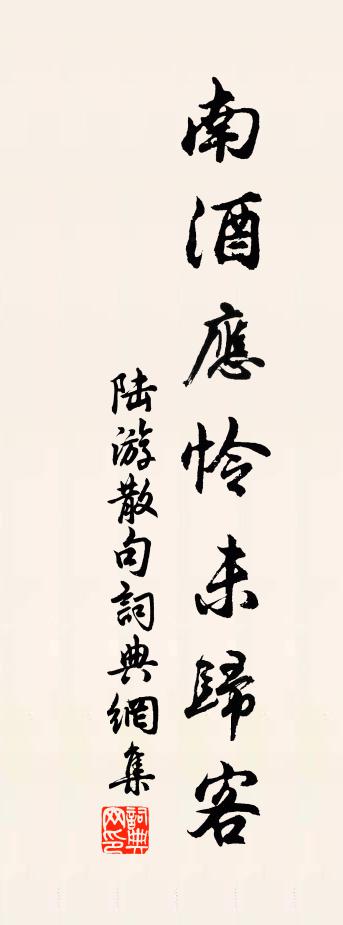 南酒應怜未歸客
陆游散句詞典網集
詞典网印